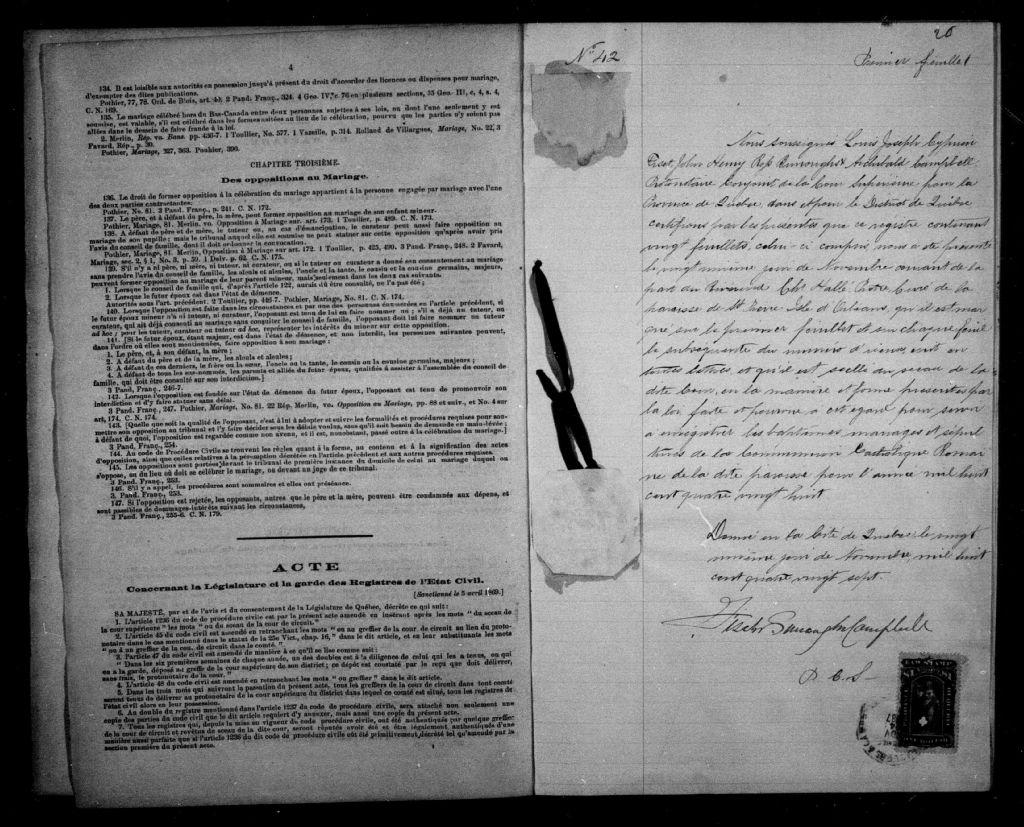 4
134. Il est loisible aux autorités en possession jusqu'à présent du droit d'accorder des licences ou dispenses pour mariage,
d'exempter des dites publications.
Pothier, 77, 78. Ord. de Blois, art. 40. 2 Pand. Franç., 324. 4 Geo. IV, c. 76 en plusieurs sections, 35 Geo. III, c. 4, s. 4,
C. N. 169.
135. Le mariage célébré hors du Bas-Canada entre deux personnes sujettes à ses lois, ou dont l'une seulement y est
soumise, est valable, s'il est célébré dans les formes usitées au lieu de la célébration, pourvu que les parties n'y soient pas
allées dans le dessein de faire fraude à la loi.
2. Merlin, Rép. vo. Bans pp. 436-7. 1 Toullier, No. 577. 1 Vazeille, p. 314. Rolland de Villargues, Mariage, No. 22, 3
Favard, Rép., p. 30.
Pothier, Mariage, 327, 363. Pouhier, 390.
CHAPITRE TROISIÈME.
Des oppositions au Mariage.
136. Le droit de former opposition à la célébration du mariage appartient à la personne engagée par mariage avec l'une
des deux parties contractantes.
Pothier, No. 81. 3 Pand. Franç., p. 241. C. N. 172.
137. Le père, et à défaut du père, la mère, peut former opposition au mariage de son enfant mineur.
Pothier, Mariage, 81. Merlin, vo. Opposition à Mariage sur. art. 173. 1 Toullier, p. 489. C. N. 173.
138. A défaut de père et de mère, le tuteur ou, au cas d'émancipation, le curateur peut aussi faire opposition au
mariage de son pupille; mais le tribunal auquel elle est soumise ne peut statuer sur cette opposition qu'après avoir pris
l'avis du conseil de famille, dont il doit ordonner la convocation.
Pothier, Mariage, 81. Merlin, Opposition à Mariage sur art. 172. 1 Toullier, p. 425, 490. 3 Pand. Franç., 248. 2 Favard,
Mariage, sec. 2, § 1, No. 3, p. 59. 1 Delv. p. 62. C. N. 175.
139. S'il n'y a ni père, ni mère, ni tuteur, ni curateur, ou si le tuteur ou curateur a donné son consentement au mariage
sans prendre l'avis du conseil de famille, les aïeuls et aïeules, l'oncle et la tante, le cousin et la cousine germains, majeurs,
peuvent former opposition au mariage de leur parent mineur, mais seulement dans les deux cas suivants.
1. Lorsque le conseil de famille qui, d'après l'article 122, aurait dû être consulté, ne l'a pas été;
2. Lorsque le futur époux est dans l'état de démence.
Autorités sous l'art. précédent. 2 Toullier, pp. 426-7. Pothier, Mariage, No. 81. C. N. 174.
140. Lorsque l'opposition est faite dans les circonstances et par une des personnes énumérées en l'article précédent, si
le futur époux mineur n'a ni tuteur, ni curateur, l'opposant est tenu de lui en faire nommer un; s'il a déjà un tuteur, ou
curateur, qui ait déjà consenti au mariage sans consulter le conseil de famille, l'opposant doit lui faire nommer un tuteur
ad hoc; pour les tuteur, curateur ou tuteur ad hoc, représenter les intérêts du mineur sur cette opposition.
141. [Si le futur époux, étant majeur, est dans l'état de démence, et non interdit, les personnes suivantes peuvent,
dans l'ordre où elles sont mentionnées, faire opposition à son mariage:
1. Le père, et, à son défaut, la mère;
2. A défaut du père et de la mère, les aïeuls et aïeules;
3. A défaut de ces derniers, le frère ou la sœur, l'oncle ou la tante, le cousin ou la cousine germains, majeurs;
4. A défaut de tous les sus-nommés, les parents et alliés du futur époux, qualifiés à assister à l'assemblée du conseil de
famille, qui doit être consulté sur son interdiction.]
3 Pand. Franç., 246-7.
142. Lorsque l'opposition est fondée sur l'état de démence du futur époux, l'opposant est tenu de promouvoir son
interdiction et d'y faire statuer sans délai.
3 Pand. Franç., 247. Pothier, Mariage, No. 81. 22 Rép. Merlin, vo. Opposition au Mariage, pp. 88 et suiv., et No. 4 sur
art, 174. C. N. 174.
143. [Quelle que soit la qualité de l'opposant, c'est à lui à adopter et suivre les formalités et procédures requises pour sou-
mettre son opposition au tribunal et l'y faire décider sous les délais voulus, sans qu'il soit besoin de demande en main-levée;
à défaut de quoi, l'opposition est regardée comme non avenue, et il est, nonobstant, passé outre à la célébration du mariage.]
3 Pand. Franç., 254.
144. Au code de Procédure Civile se trouvent les règles quant à la forme, au contenu et à la signification des actes
d'opposition, ainsi que celles relatives à la péremption décrétée en l'article précédent et aux autres procédures requises.
145. Les oppositions sont portées devant le tribunal de première instance du domicile de celui au mariage duquel on
s'oppose, ou du lieu où doit se célébrer le mariage, ou devant un juge de ce tribunal.
3 Pand. Franç., 253.
146. S'il y a appel, les procédures sont sommaires et elles ont préséance.
3. Pand. Franç., 253.
147. Si l'opposition est rejetée, les opposants, autres que le père et la mère, peuvent être condamnés aux dépens, et
sont passibles de dommages-intérêts suivant les circonstances,
3 Pand. Franç., 255-6. C. N. 179.
ACTE
Concernant la Législature et la garde des Registres de l'Etat Civil.
[Sanctionné le 5 avril 1869.]
SA MAJESTÉ, par et de l'avis et du consentement de la Législature de Québec, décrète ce qui suit:
1. L'article 1236 du code de procédure civile est par le présent acte amendé en insérant après les mots "du sceau de
la cour supérieure" les mots "ou du sceau de la cour de circuit."
2. L'article 45 du code civil est amendé en retranchant les mots "ou au greffier de la cour de circuit au lieu du proto-
notaire dans le cas mentionné dans le statut de la 25e Vict., chap. 16," dans le dit article, et en leur substituant les mots
"ou à un greffier de la cour de circuit dans le comté."
3. L'article 47 du code civil est amendé de manière à ce qu'il se lise comme suit:
"Dans les six premières semaines de chaque année, un des doubles est à la diligence de celui qui les a tenus, ou qui
en a la garde, déposé au greffe de la cour supérieure de son district; ce dépôt est constaté par le reçu que doit délivrer,
sans frais, le protonotaire de la cour."
4. L'article 48 du code civil est amendé en retranchant les mots "ou greffier" dans le dit article.
5. Dans les trois mois qui suivront la passation du présent acte, tous les greffiers de la cour de circuit dans tout comté
seront tenus de délivrer au protonotaire de la cour supérieure du district dans lequel ce comté est situé, tous les registres de
l'état civil alors en leur possession.
6. Au double du registre mentionné dans l'article 1237 du code de procédure civile, sera attaché non seulement une
copie des parties du code civil que le dit article requiert d'y annexer, mais aussi une copie du présent acte.
7. Tous les registres qui, depuis la mise en vigueur du code de procédure civile, ont été authentiqués par quelque greffier
de la cour de circuit et revêtus du sceau de la dite cour, seront réputés avoir été et être légalement authentiqués d'une
manière aussi parfaite que si l'article 1236 du dit code de procédure civile eût été primitivement décrété tel qu'amendé par la
section première du présent acte.
No 42
20
Premier feuillet
Nous soussignés Louis Joseph Cyprien
Fiset, John Henry Ross Burroughs & Archibald Campbell
Protonotaire Conjoint de la Cour Supérieure pour la
Province de Québec, dans et pour le District de Québec
certifions par les présentes que ce registre contenant
vingt feuillets, celui-ci compris, nous a été présenté
le vingt neuvième jour de Novembre courant de la
part du Révérend Chs Hallé Ptre Curé de la
paroisse de St Pierre Isle d'Orléans, qu'il est mar
qué sur le premier feuillet et sur chaque feuil
let subséquent du numéro d'iceux, écrit en
toutes lettres, et qu'il est scellé du sceau de la
dite Cour, en la manière et forme prescrites par
la loi faite et pourvue à cet égard pour servir
à enregistrer les baptêmes, mariages et sépul
tures de la Communion Catholique Romai
ne de la dite paroisse pour l'année mil huit
cent quatre vingt huit
Donné en la Cité de Québec le vingt
neuvième jour de Novembre, mil huit
cent quatre vingt sept.
Fiset Burroughs Campbell
P. C. S.
LAW STAMP